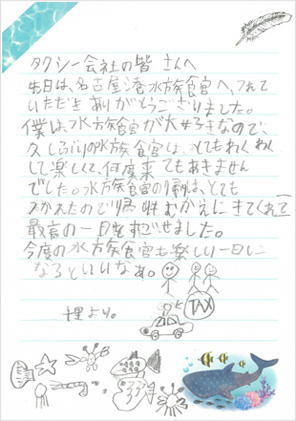 タクシー会社の皆さんへ
先日は、名古屋港水族館へ、つれて
いただきありがとうございました。
僕は、水族館が大好きなので、
久しぶりの水族館は、とてもわくわく
して楽しくて、何度来てもあきません
でした。水族館の帰りは、とても
つかれたので帰りむかえにきてくれて
最高の一日をすごせました。
今度の水族館も楽しい一日に
なるといいなあ。
より。
TAXI